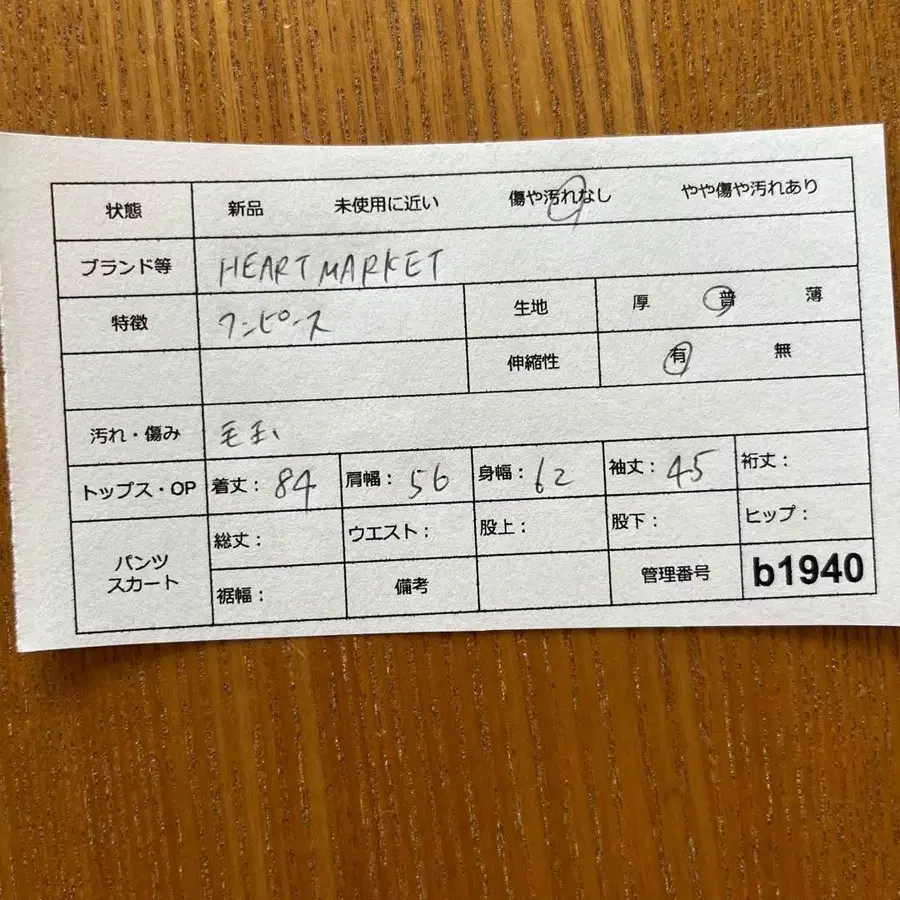 状態 新品 未使用に近い 傷や汚れなし やや傷や汚れあり
ブランド等 HEART MARKET
特徴 ワンピース 生地 厚 普 薄
伸縮性 有 無
汚れ・傷み 毛玉
トップス・OP 着丈： 84 肩幅： 56 身幅： 62 袖丈： 45 裄丈：
パンツ スカート 総丈： ウエスト： 股上： 股下： ヒップ：
裾幅： 備考 管理番号 b1940